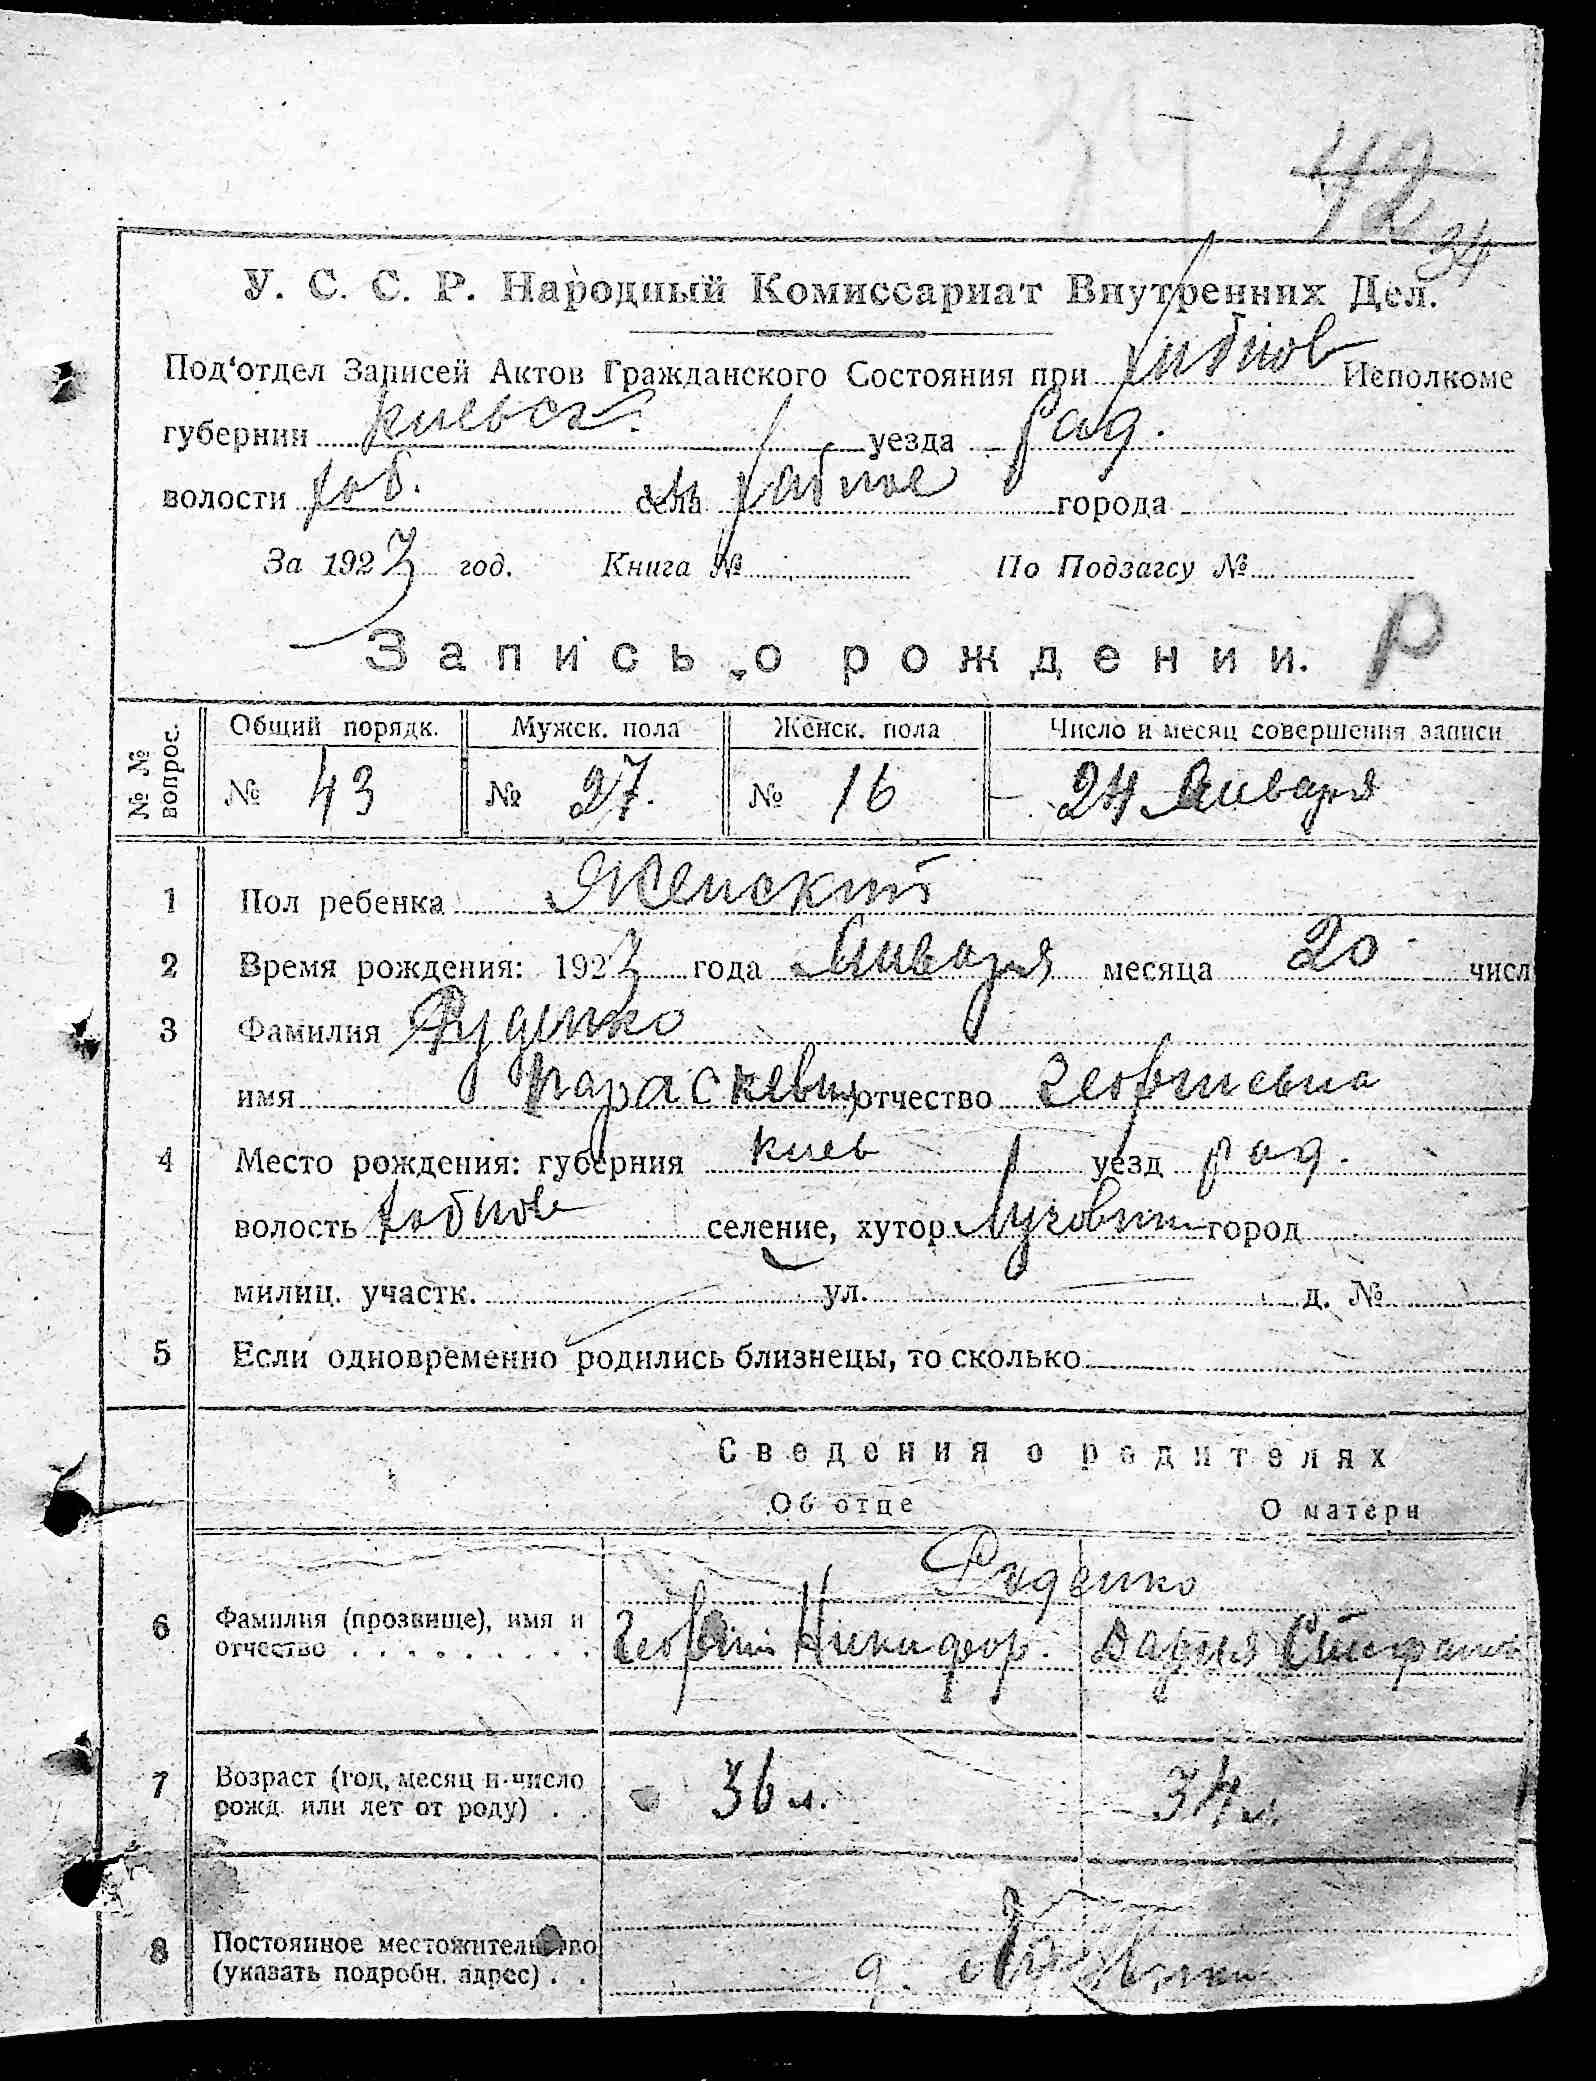 34
У. С. С. Р. Народный Комиссариат Внутренних Дел.
Под'отдел Записей Актов Гражданского Состояния при Хабнов Исполкоме
губернии Киевск. уезда Рад.
волости Хаб. села Хабное города
За 1923 год. Книга № По Подзагсу №
Запись о рождении. Р
№ № вопрос. Общий порядк. Мужск. пола Женск. пола Число и месяц совершения записи
№ 43 № 27. № 16 24 Января
1 Пол ребенка Женский
2 Время рождения: 1923 года Января месяца 20 числ
3 Фамилия Руденко
имя Параскевия отчество Георгиевна
4 Место рождения: губерния Киев уезд Рад.
волость Хабное селение, хутор город
милиц. участк. ул. д. №
5 Если одновременно родились близнецы, то сколько
Сведения о родителях
Об отце О матери
Руденко
6 Фамилия (прозвище), имя и отчество . . . . . . . . . Георгий Никифор. Дария Стефанов
7 Возраст (год, месяц и число рожд. или лет от роду) . . 36 л. 34 л.
8 Постоянное местожительство (указать подробн. адрес) . . д.